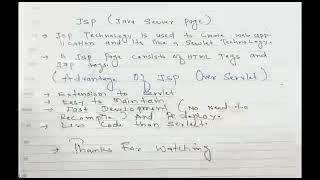 JSP (Java Server Page)
→ JSP Technology is used to create web app-
lication and its like a Servlet Technology.
→ A JSP Page consists of HTML Tags and
JSP tags.
(Advantage Of JSP Over Servlet)
→ Extension to Servlet
→ Easy to Maintain
→ Fast Development (No Need To
Recompile) And Re deploy.
→ Less Code than Servlet.
→ Thanks For Watching